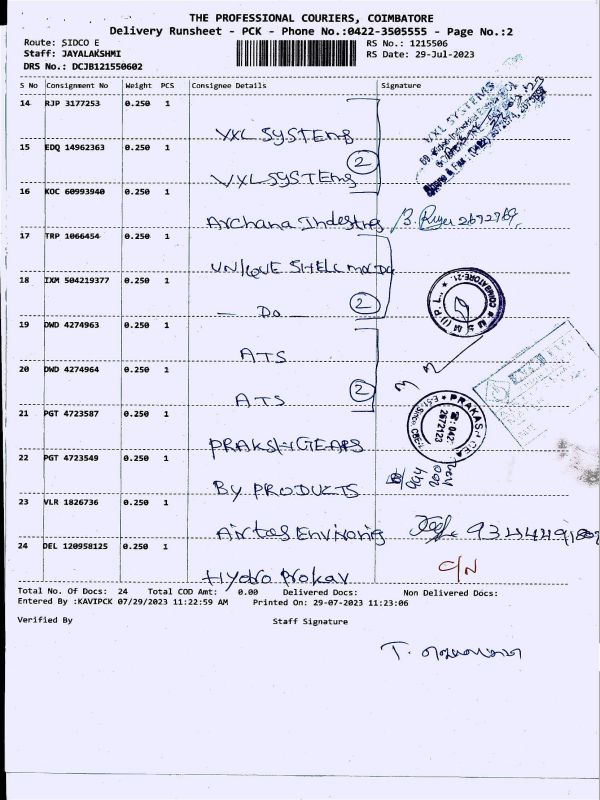 THE PROFESSIONAL COURIERS, COIMBATORE
Delivery Runsheet - PCK - Phone No.:0422-3505555 - Page No.:2
Route: SIDCO E
RS No.: 1215506
Staff: JAYALAKSHMI
RS Date: 29-Jul-2023
DRS No.: DCJB121550602
S No Consignment No Weight PCS Consignee Details Signature
14 RJP 3177253 0.250 1
VXL SYSTEMS
VXL SYSTEMS
15 EDQ 14962363 0.250 1
2
VXL SYSTEMS
16 KOC 60993940 0.250 1
Archana
17 TRP 1066454 0.250 1
UNIQUE
18 IXM 504219377 0.250 1
COIMBATORE-21
2
— Do —
19 DWD 4274963 0.250 1
ATS
20 DWD 4274964 0.250 1
2
ATS
PRAKASH GEA
2672123
21 PGT 4723587 0.250 1
PRAKSH GEARS
22 PGT 4723549 0.250 1
BY PRODUCTS
23 VLR 1826736 0.250 1
24 DEL 120958125 0.250 1
Hydro Prokav
C/N
Total No. Of Docs: 24 Total COD Amt: 0.00 Delivered Docs: Non Delivered Docs:
Entered By :KAVIPCK 07/29/2023 11:22:59 AM Printed On: 29-07-2023 11:23:06
Verified By Staff Signature